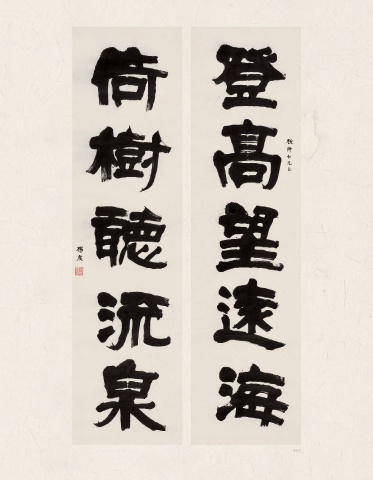 登高望遠海
倚樹聽流泉